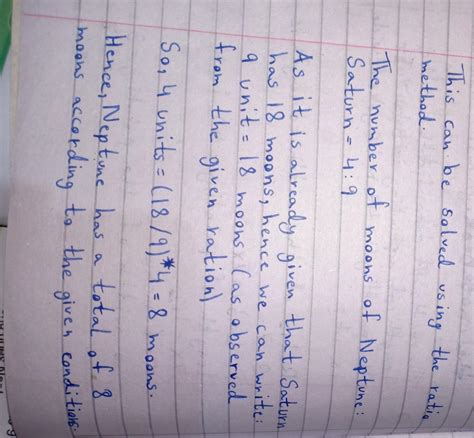 This can be solved using the ratio
method.
The number of moons of Neptune:
Saturn = 4:9
As it is already given that Saturn
has 18 moons, hence we can write:
9 unit = 18 moons (as observed
from the given ration)
So, 4 units = (18/9)*4 = 8 moons.
Hence, Neptune has a total of 8
moons according to the given conditions.